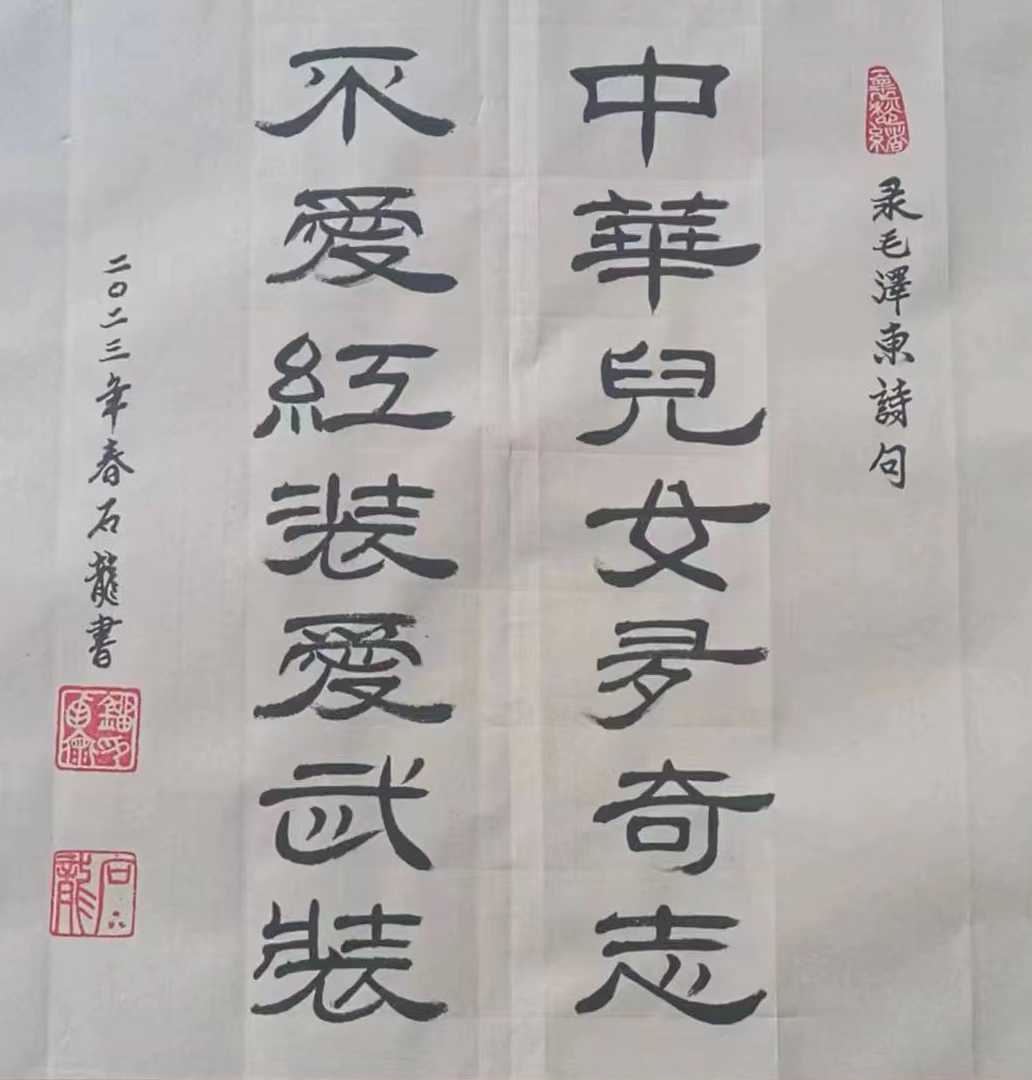 录毛澤東詩句
中華兒女多奇志
不愛紅装愛武装
二〇二三年春石龍書
石龍